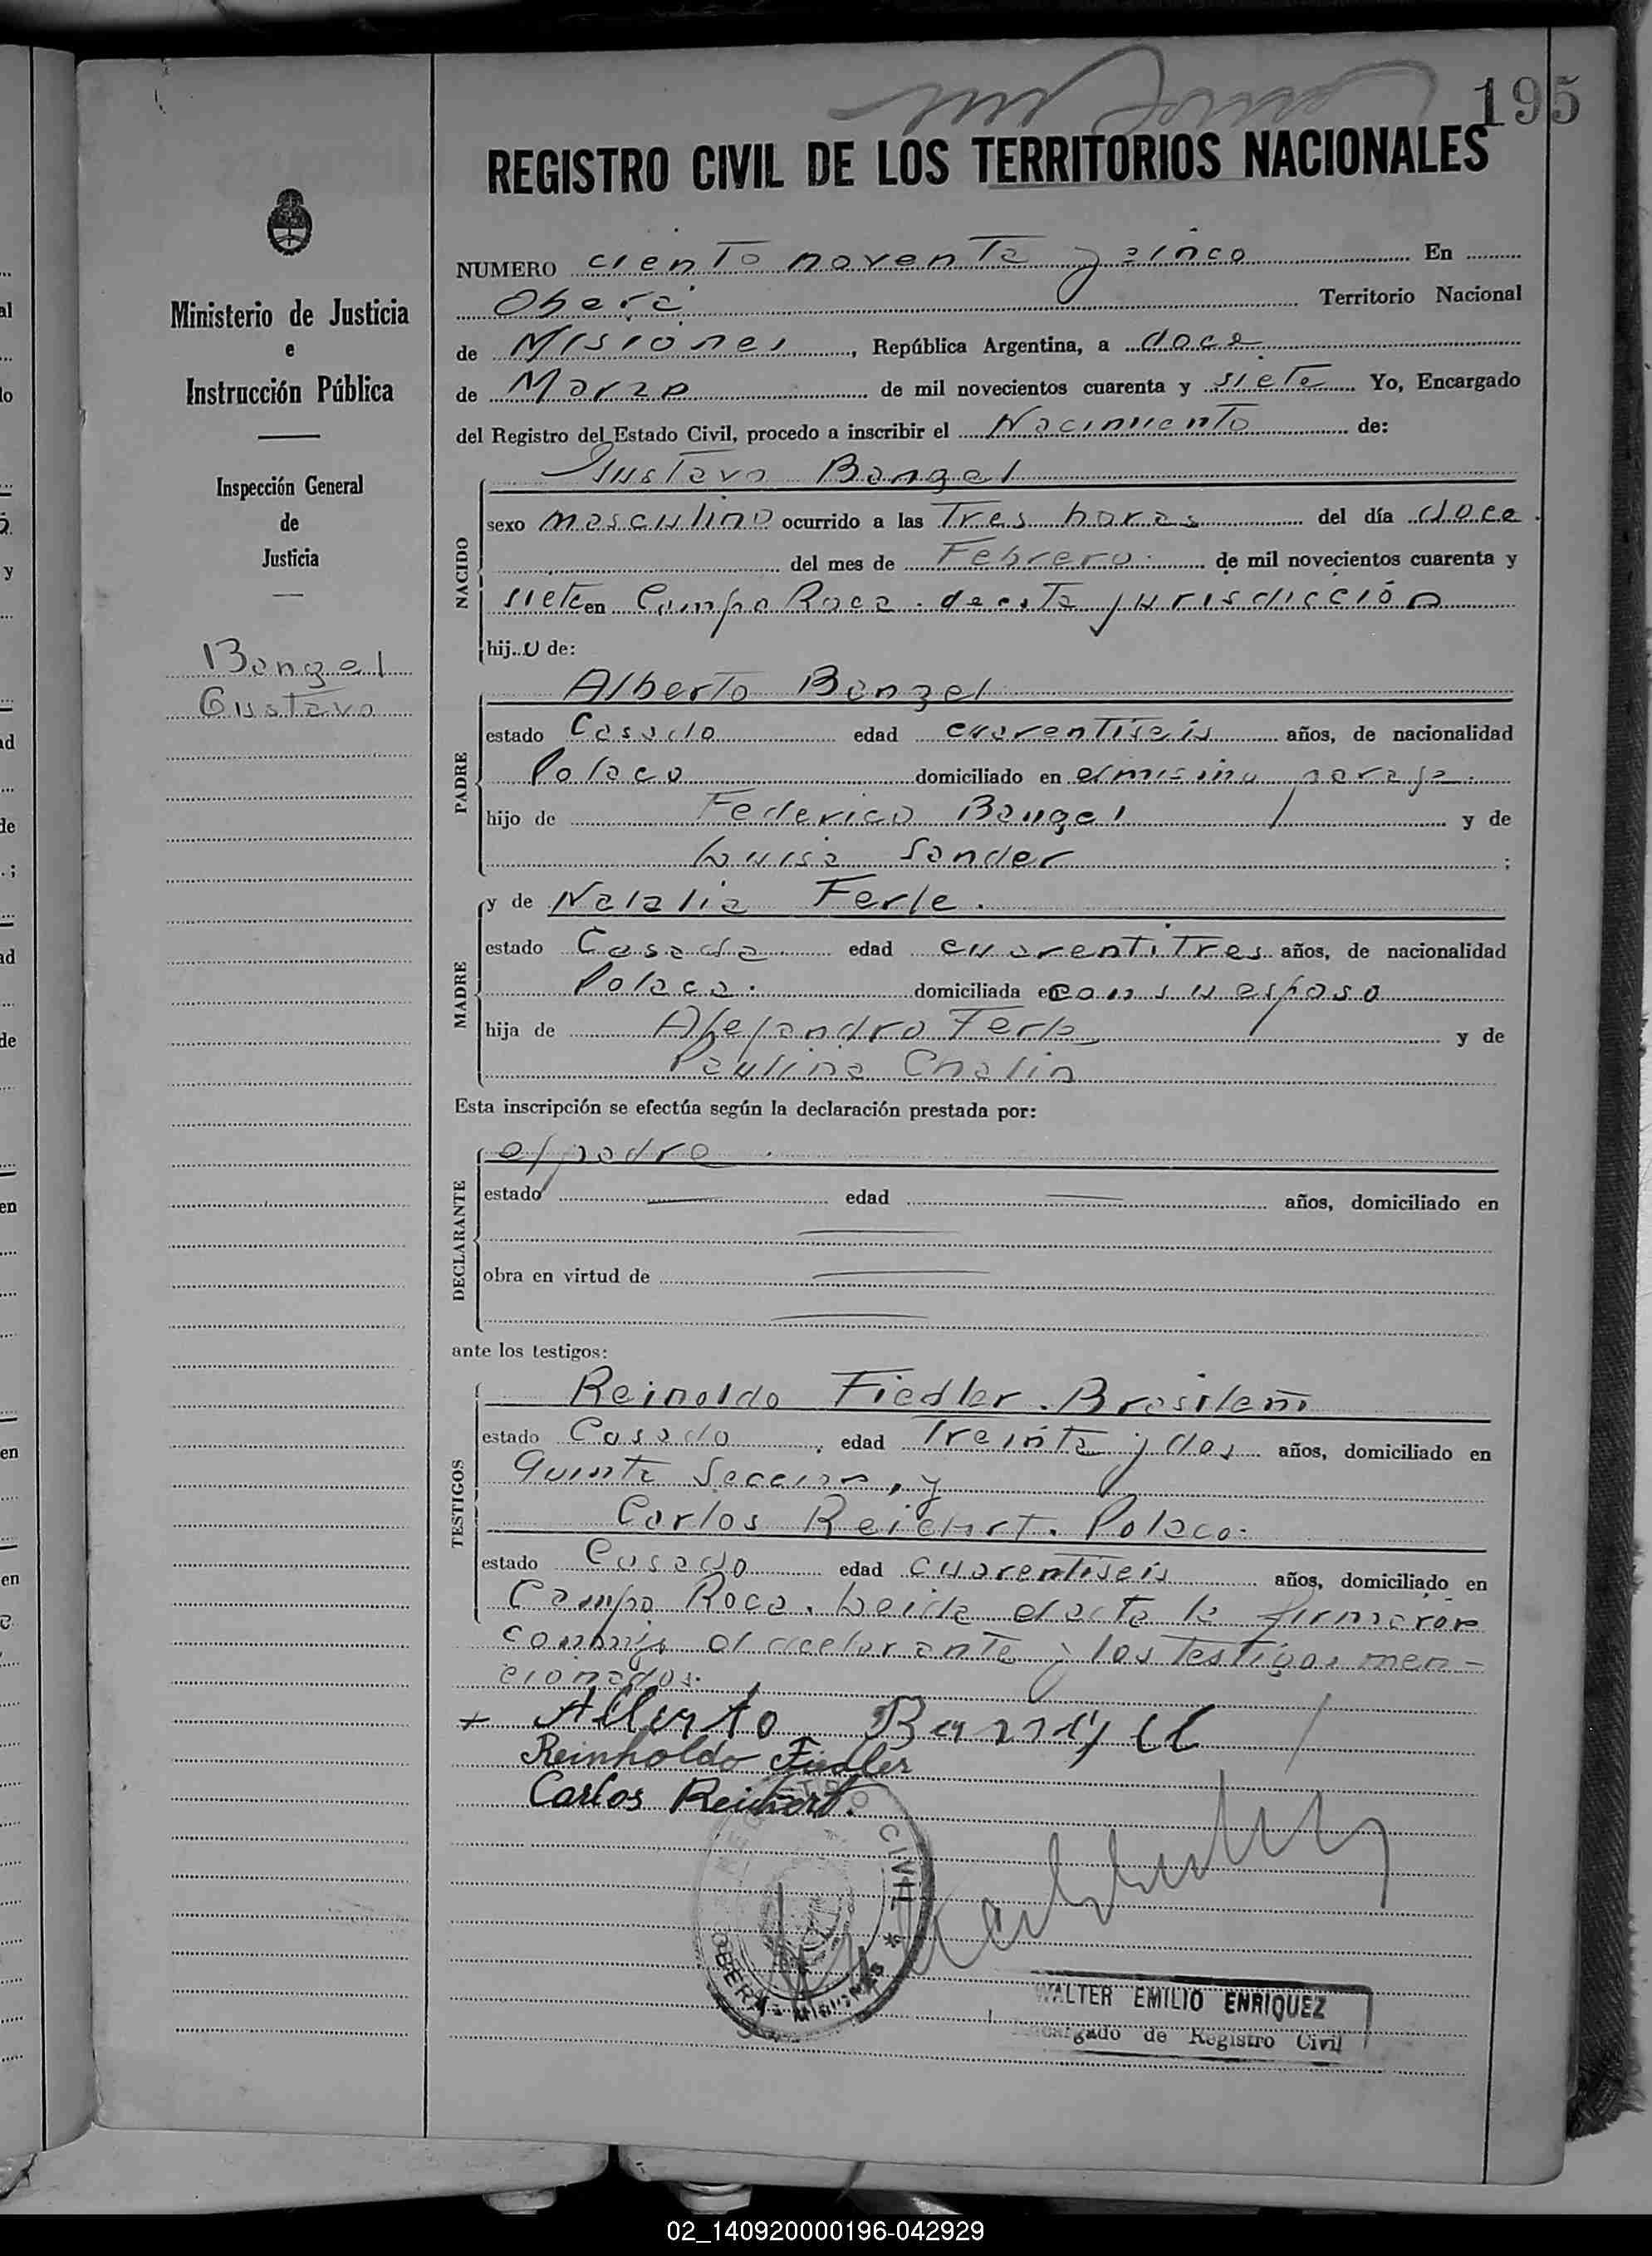 195
REGISTRO CIVIL DE LOS TERRITORIOS NACIONALES
NUMERO ciento noventa y cinco En
Oberá Territorio Nacional
de Misiones, República Argentina, a doce
de Marzo de mil novecientos cuarenta y siete Yo, Encargado
del Registro del Estado Civil, procedo a inscribir el Nacimiento de:
Ministerio de Justicia
e
Instrucción Pública
Inspección General
de
Justicia
Bengel
Gustavo
NACIDO
Gustavo Bangel
sexo masculino ocurrido a las Tres horas del día doce
del mes de Febrero de mil novecientos cuarenta y
siete en Campo Roca. de esta jurisdicción
hijo de:
PADRE
Alberto Bangel
estado Casado edad cuarentiseis años, de nacionalidad
Polaco domiciliado en el mismo paraje.
hijo de Federico Bangel y de
Luisa Sander ;
MADRE
y de Natalia Ferle.
estado Casada edad cuarentitres años, de nacionalidad
Polaca. domiciliada en con su esposo
hija de Alejandro Ferle y de
Paulina
Esta inscripción se efectúa según la declaración prestada por:
DECLARANTE
el padre.
estado edad años, domiciliado en
obra en virtud de
ante los testigos:
TESTIGOS
Reinoldo Fiedler. Brasileño
estado Casado, edad Treinta y dos años, domiciliado en
Quinta Seccion, y
Carlos Reichert. Polaco.
estado Casado edad cuarentiseis años, domiciliado en
Campo Roca. Leida el acta la firmaron
conmigo el declarante y los testigos men-
cionados.
+ Alberto Bangel
Reinholdo Fiedler
Carlos Reichert.
REGISTRO CIVIL
OBERÁ - MISIONES
WALTER EMILIO ENRIQUEZ
Encargado de Registro Civil
02_140920000196-042929